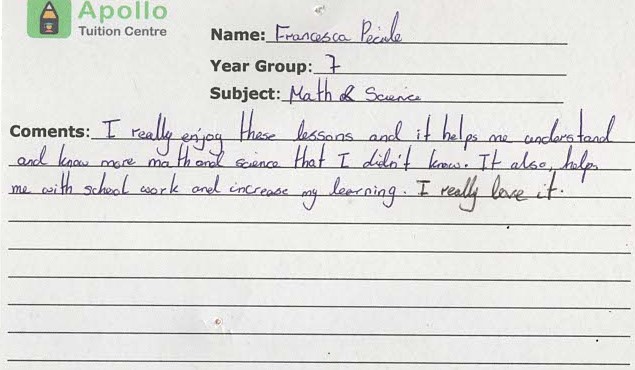 Apollo
Tuition Centre
Name: Francesca
Year Group: 7
Subject: Math & Science
Coments: I really enjoy these lessons and it helps me understand
and know more math and science that I didn't know. It also, helps
me with school work and increase my learning. I really love it.